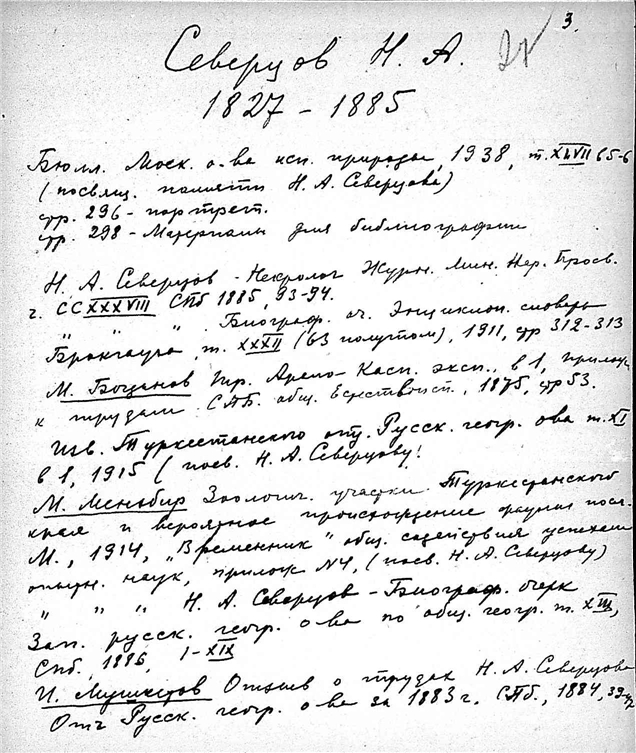 3.
Северцов Н. А.
1827 - 1885
Бюлл. Моск. о-ва исп. природы, 1938, т. XLVII в5-6
(посвящ. памяти Н. А. Северцова)
стр. 296 - портрет.
стр. 298 - Материалы для библиографии
Н. А. Северцов - Некролог Журн. Мин. Нар. Просв.
ч. CCXXXVIII СПб 1885, 93-94.
" " " Биограф. оч. Энциклоп. словарь
Брокгауза, т. XXXII (63 полутом), 1911, стр 312-313
М. Богданов Тр. Арало-Касп. эксп., в 1, прилож
к трудам С.П.Б. общ. Естествоисп., 1875, стр 53.
Изв. Туркестанского отд. Русск. геогр. ова т. XI
в 1, 1915 (посв. Н. А. Северцову!
М. Мензбир Зоологич. участки Туркестанского
края и вероятное происхождение фауны посл.
М., 1914, "Временник" общ. содействия успехам
опытн. наук, прилож N4, (посв. Н. А. Северцову)
" " " Н. А. Северцов - Биограф. очерк
Зап. русск. геогр. ова по общ. геогр. т. XIII,
Спб. 1886, I-XIX
И. Мушкетов Отзыв о трудах Н. А. Северцова
Отч Русск. геогр. ова за 1883 г. СПб., 1884,